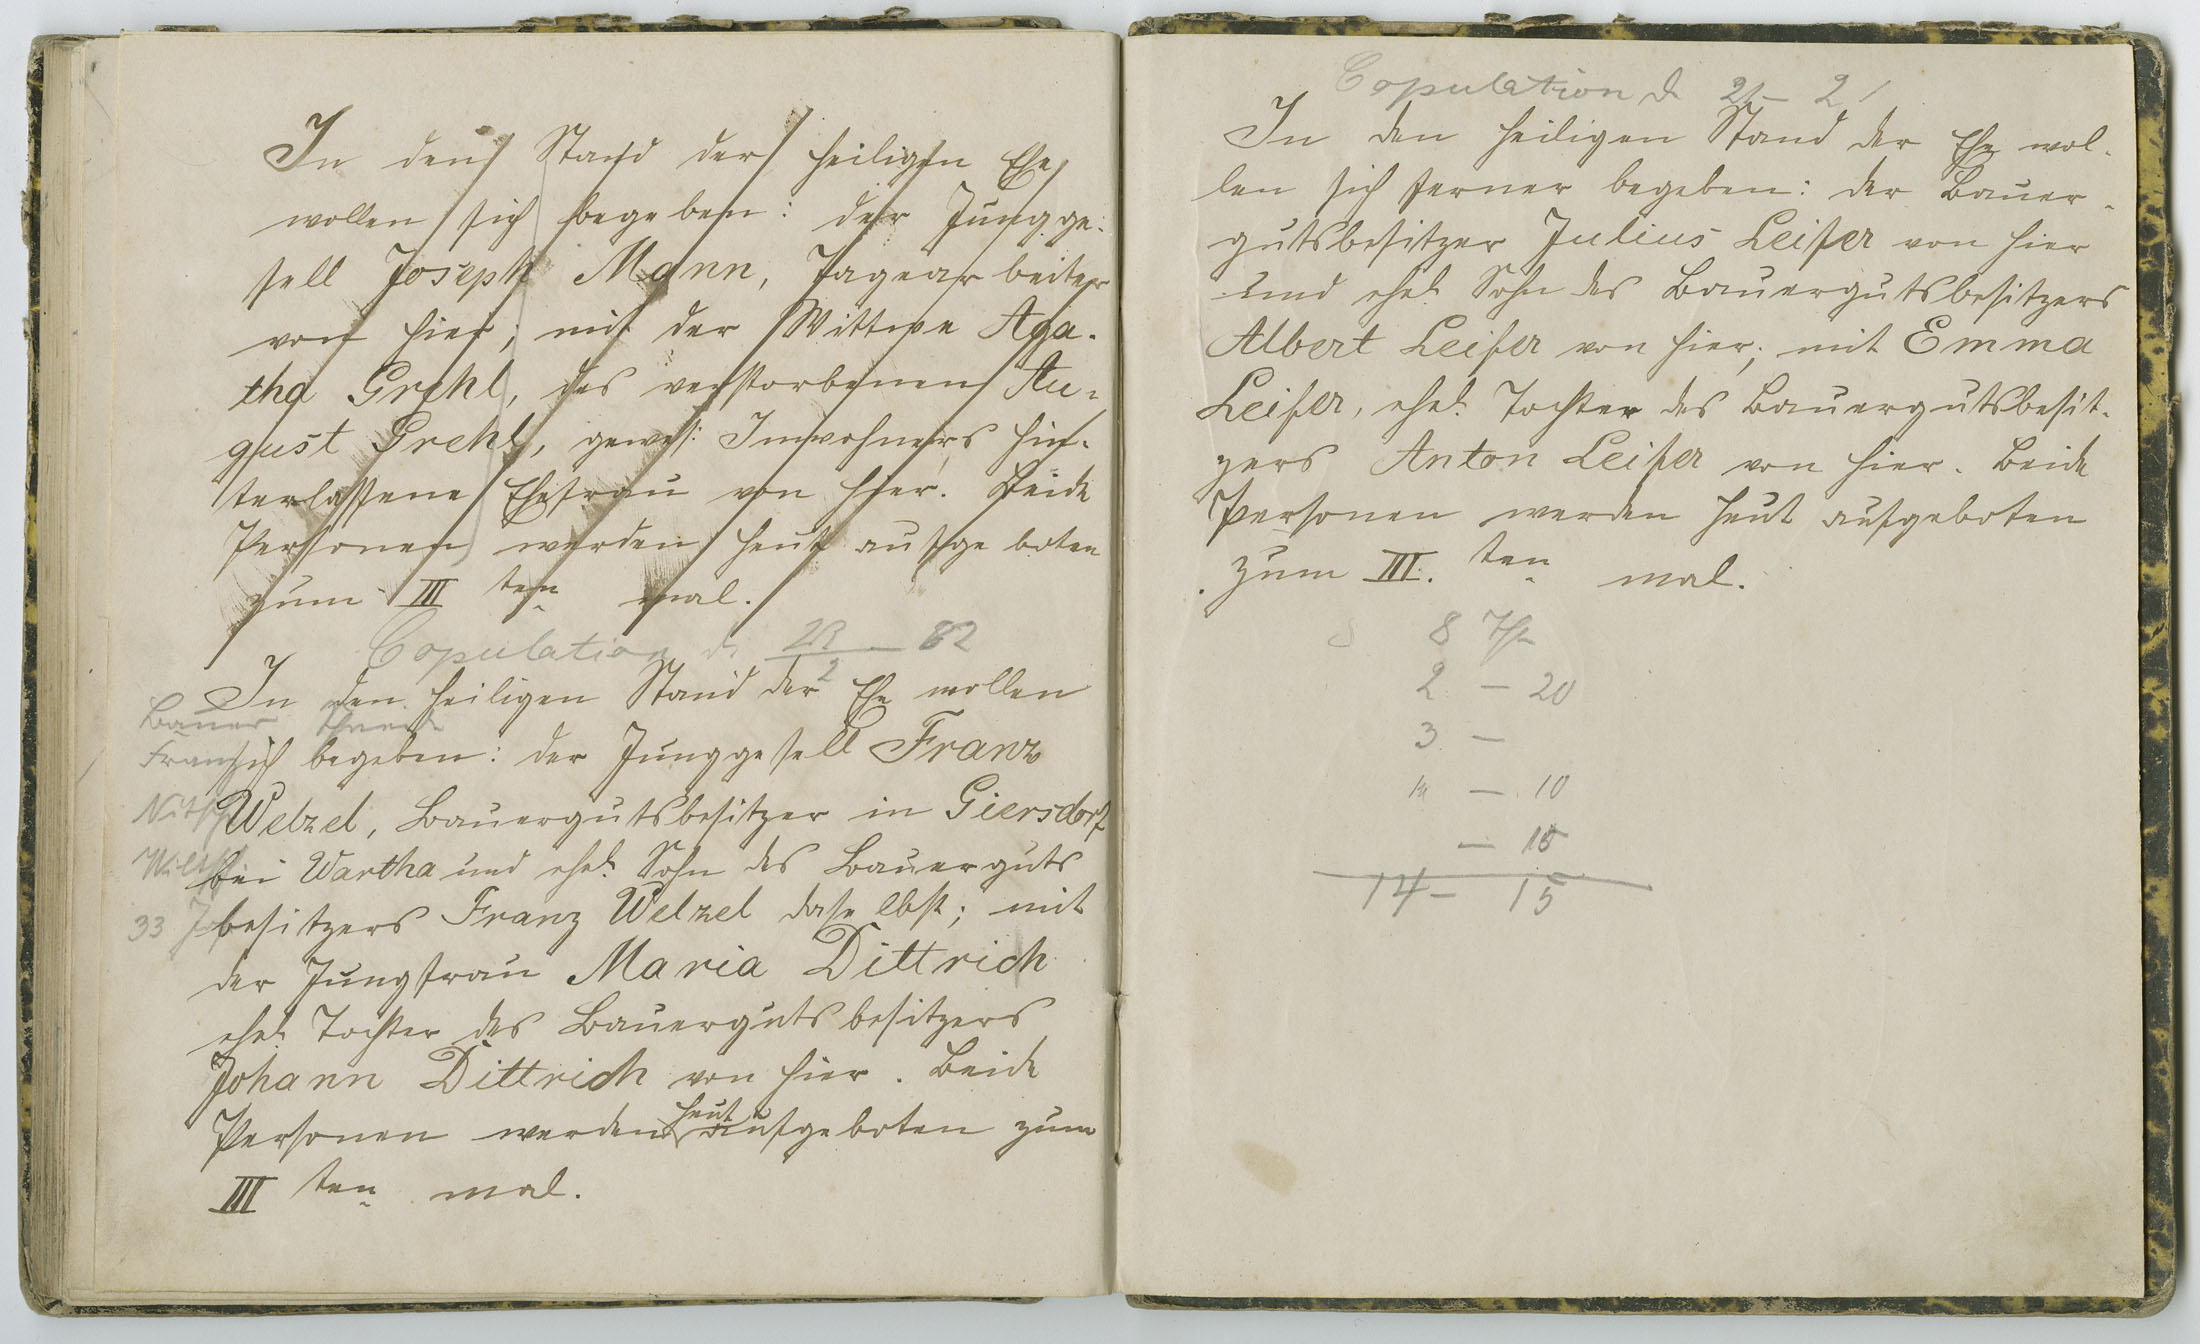 In den Stand der heiligen Ehe
wollen sich begeben: der Jungge-
sell Joseph Mann, Tagearbeiter
von hier; mit der Wittwe Aga-
tha Grehl, des verstorbenen Au-
gust Grehl, gewes: Inwohners hin-
terlassene Ehefrau von hier. Beide
Personen werden heut aufgeboten
zum III ten mal.
Copulation d. 21 — 82
2
In den heiligen Stand der Ehe wollen
Bauer
Franz
sich begeben: der Junggesell Franz
Welzel, Bauergutsbesitzer in Giersdorf
bei Wartha und ehel. Sohn des Bauerguts
33
besitzers Franz Welzel daselbst; mit
der Jungfrau Maria Dittrich
ehel. Tochter des Bauergutsbesitzers
Johann Dittrich von hier. Beide
Personen werden heut aufgeboten zum
III ten mal.
Copulation d. 21 – 2
In den heiligen Stand der Ehe wol-
len sich ferner begeben: der Bauer-
gutsbesitzer Julius Leifer von hier
und ehel. Sohn des Bauergutsbesitzers
Albert Leifer von hier; mit Emma
Leifer, ehel. Tochter des Bauergutsbesit-
zers Anton Leifer von hier. Beide
Personen werden heut aufgeboten
zum III. ten mal.
8
2 — 20
3 —
— 10
— 15
14 – 15